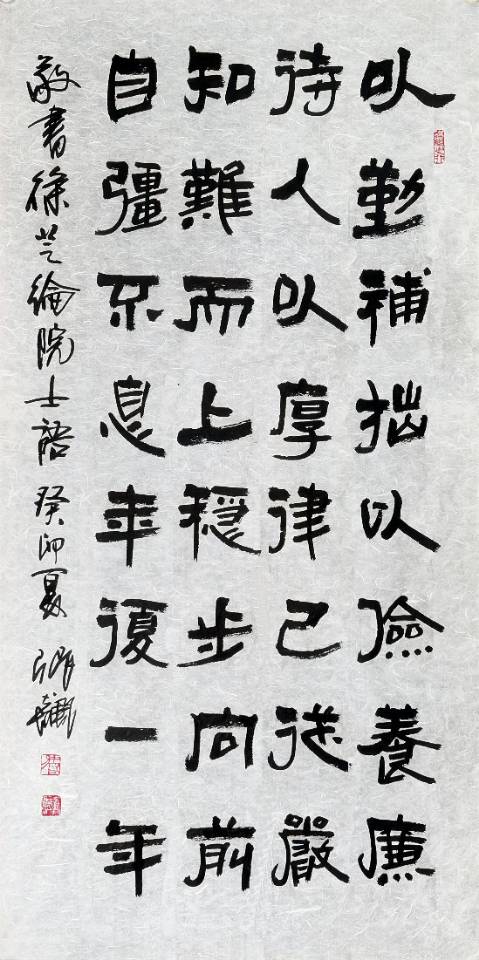 以勤補拙以儉養廉
待人以厚律己從嚴
知難而上穩步向前
自彊不息年復一年
敬書徐芝綸院士語 癸卯夏